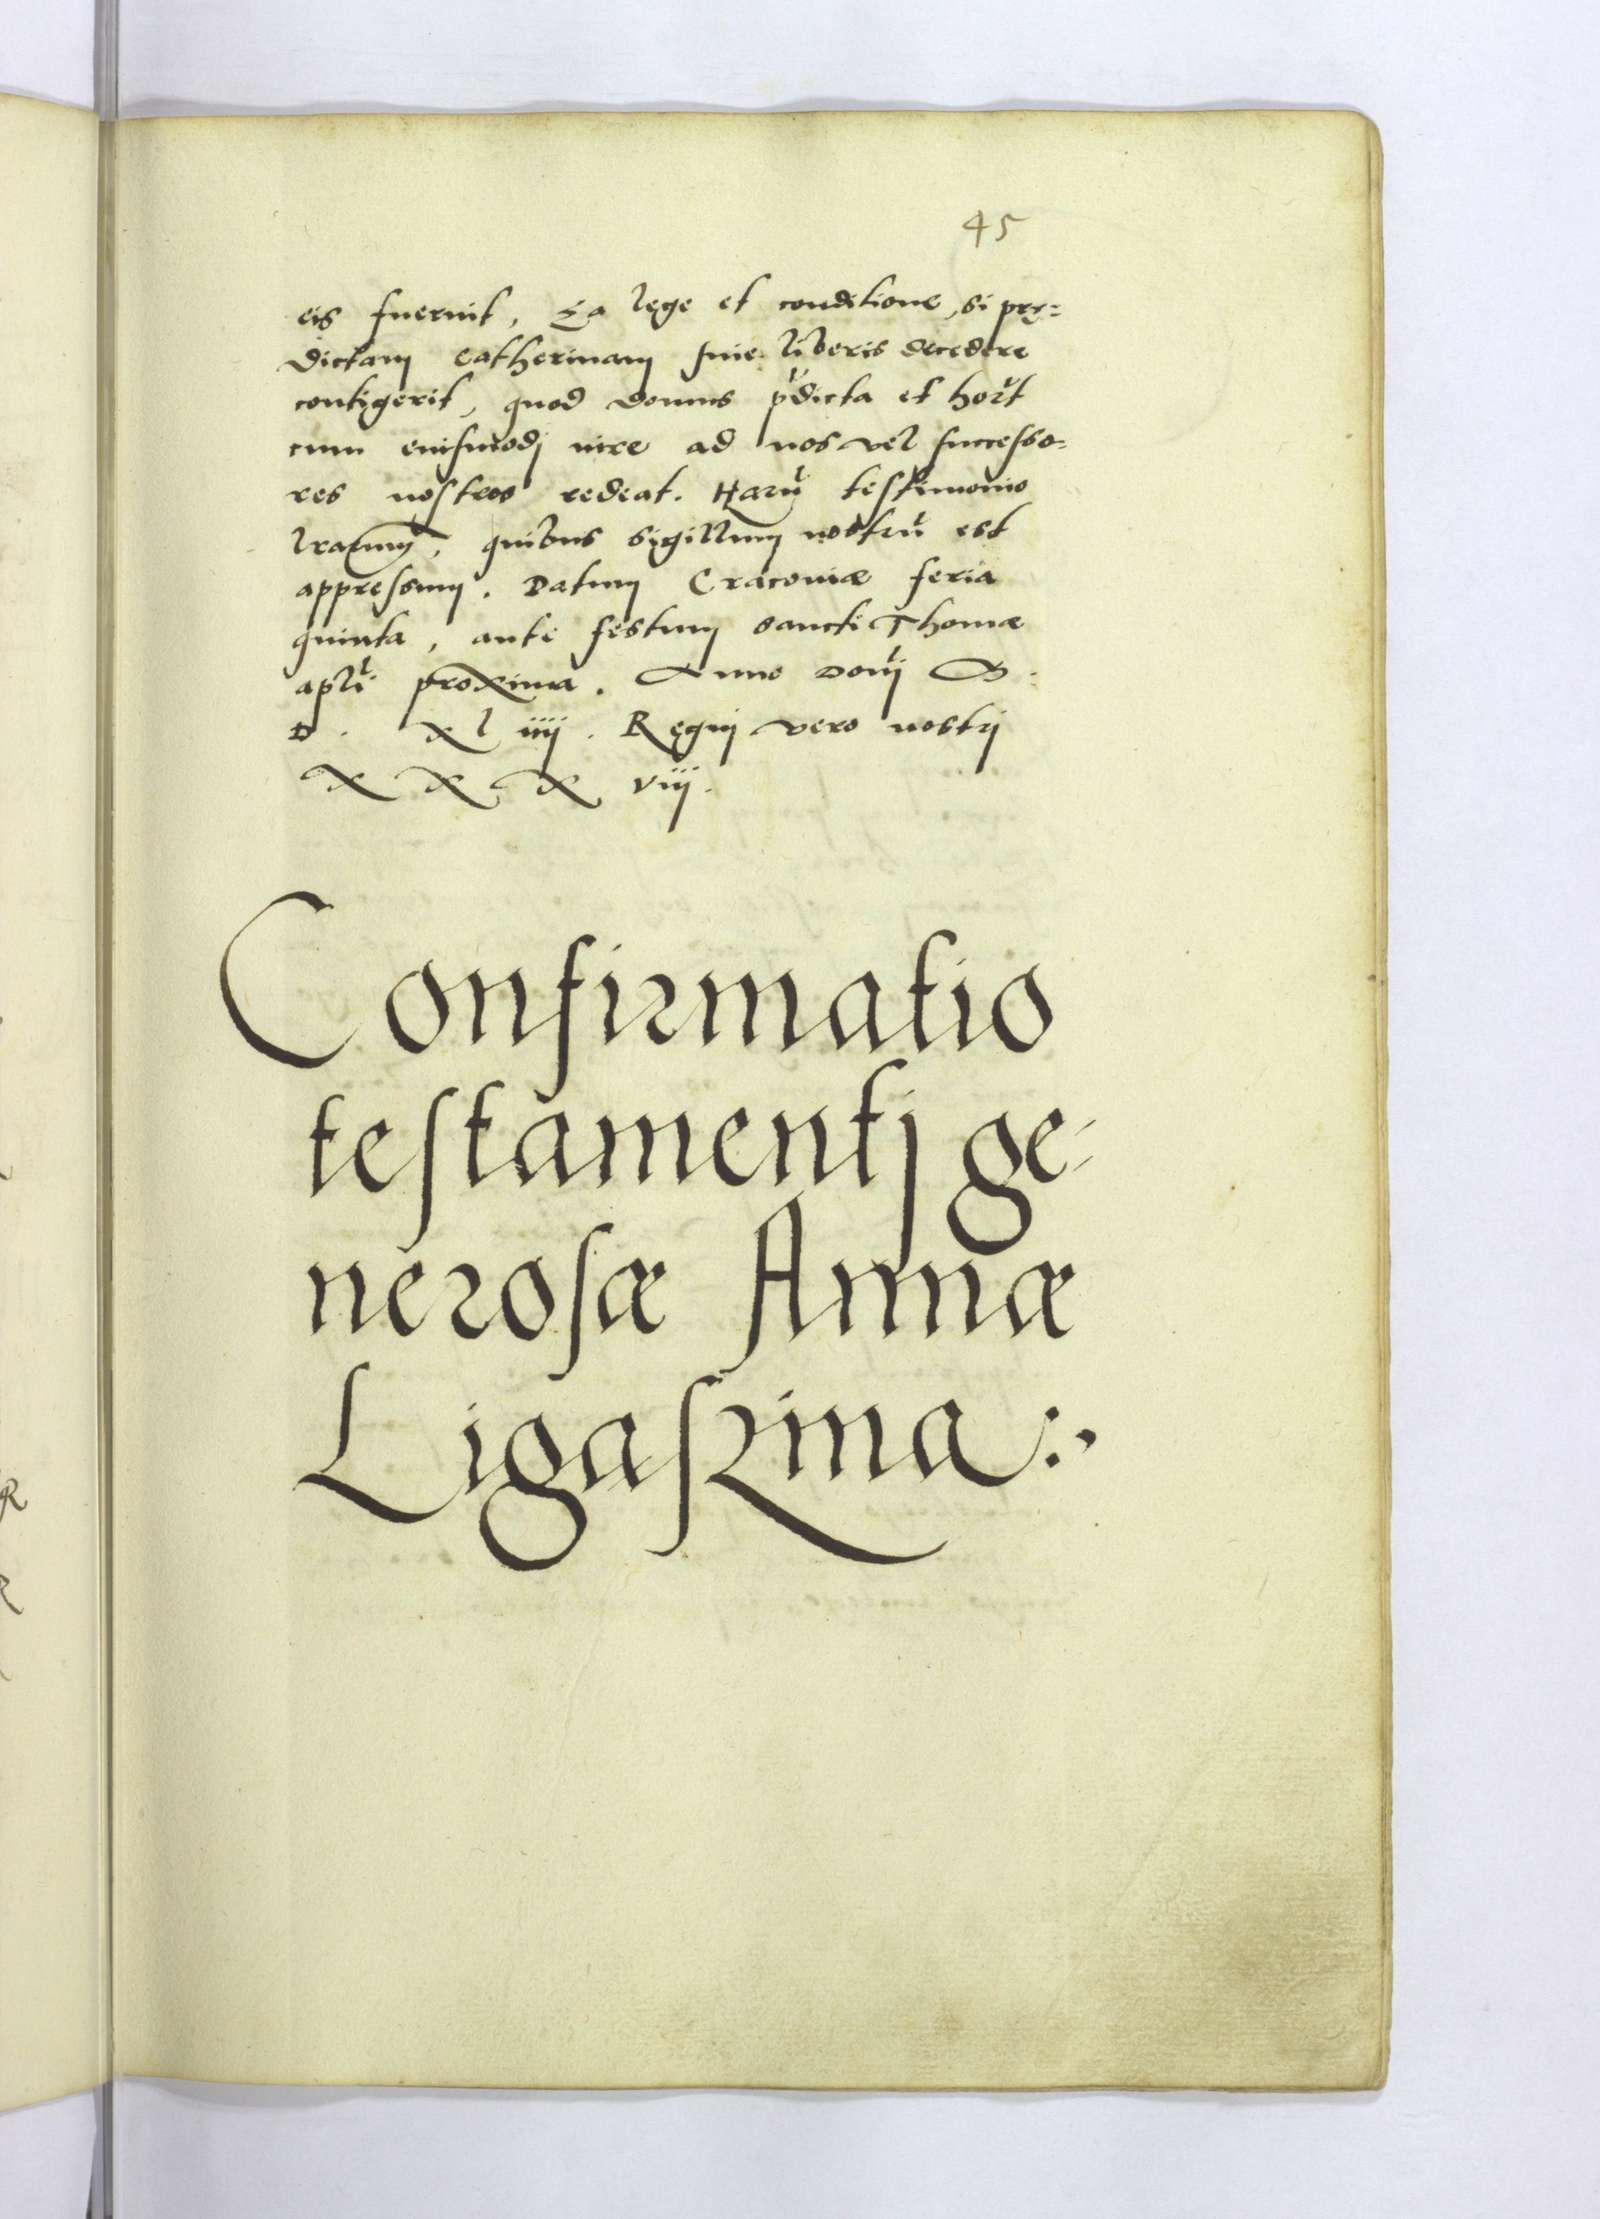 45
eis fuerint, Ea lege et conditione, si prę-
dictam Catherinam sine liberis decedere
contigerit, quod domus p̃dicta et hort
cum eiusmodj iure ad nos vel successo-
res nostros redeat. Harũ testimonio
lrarum, quibus sigillum nostrũ est
appressum. Datum Cracoviæ feria
quinta, ante festum sancti Thomæ
apli proxima. Anno Domj M.
D. XL iiij. Regnj vero nostrj
XXX viij.
Confirmatio
testamentj ge-
nerosæ Annæ